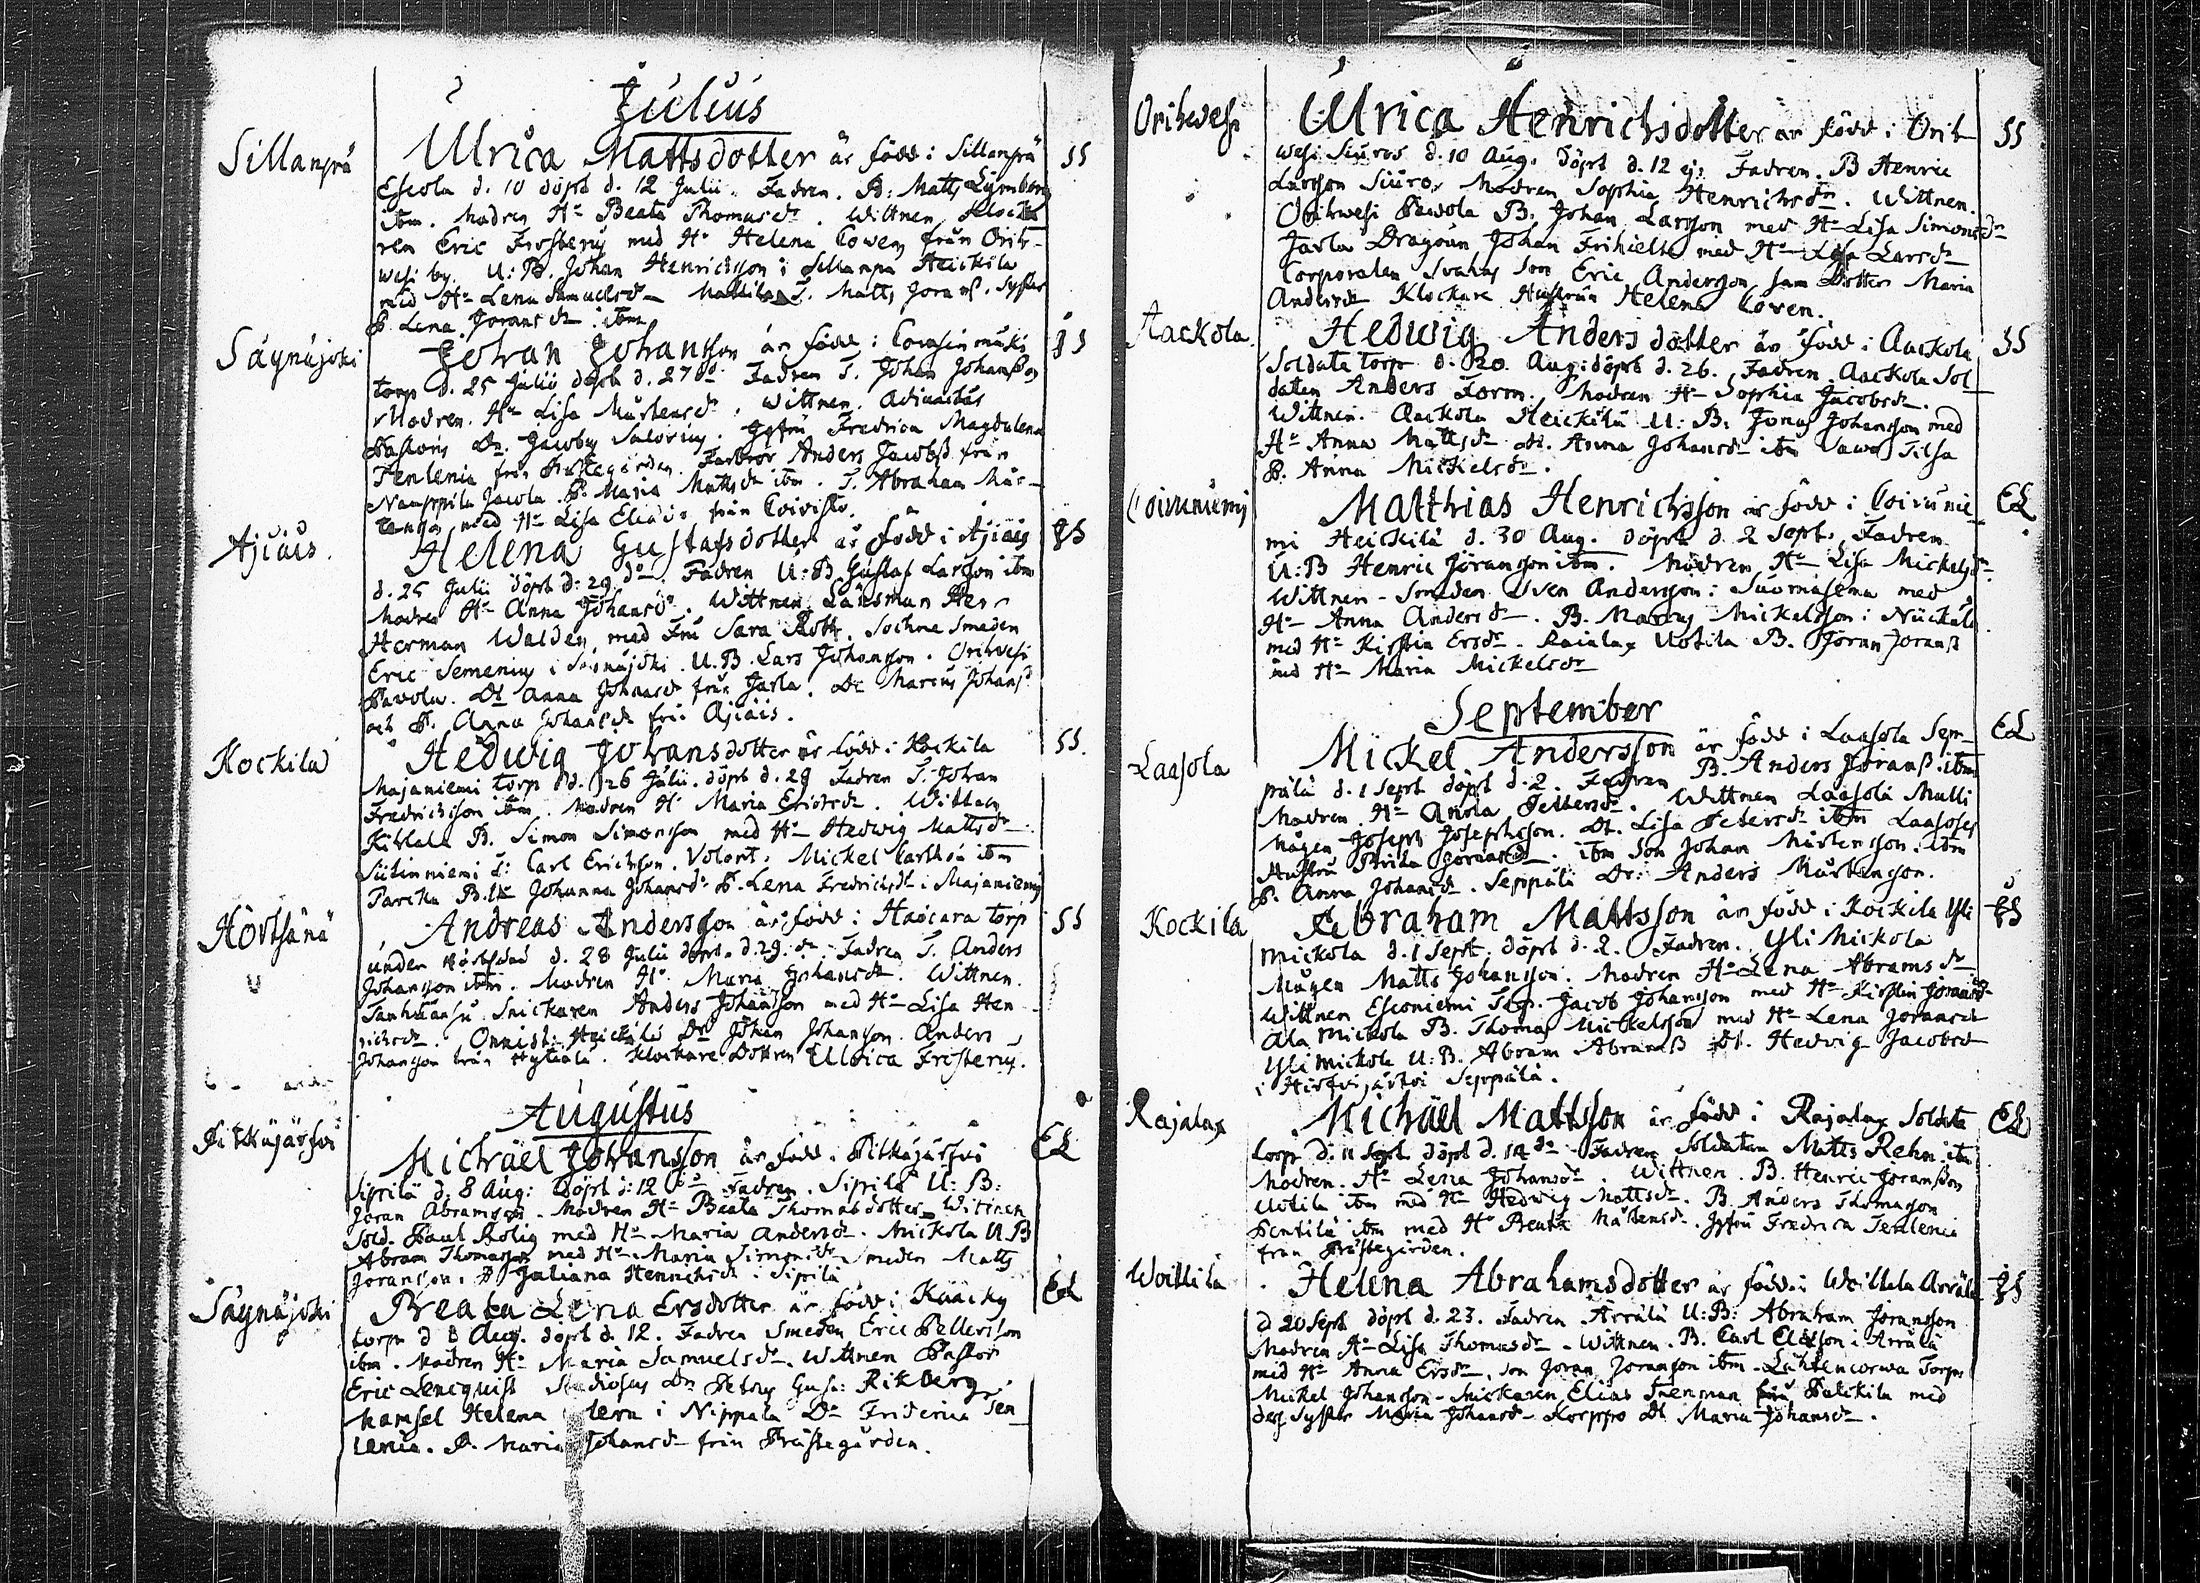 Julius
Sillanpä Ulrica Mattsdotter är född i Sillanpä SS
Escola d. 10 döpt d. 12 Julii. Fadren. B: Matts
ibm. Modren Hu Beata Thomasdr. Wittnen Klocka
ren Eric Frosterus med Hu Helena Coven från Orih-
wesi by. U: B. Johan Henricsson i Sillanpä Heickilä
med Hu Lena Samuelsdr Mattila D. Matts Joranss. Syster
P. Lena Joransdr ibm
Säynäjoki Johan Johansson är född i
torp d. 25 Julii döpt d. 27do Fadren T. Johan Johansson
Modren. Hu Lisa Mårtensdr. Wittnen. Adjunctus
Pastoris Dn. Jacobus Salovius. Jgfru Fredrica Magdalena
Tenlenia från Prästegården. Farbror Anders Jacobss från
Jacola. P. Maria Mattsdr ibm. T. Abraham Mår-
med Hu Lisa från Coivisto.
Ajiäis. Helena Gustafsdotter är född i Ajiäis
d. 25 Julii döpt d. 29 do. Fadren U: B Gustaf Larsson ibm
Modren Hu Anna Johansdr. Wittnen Länsman Herr
Herman Walden med Fru Sara Roth. Sochne Smeden
Eric Semenius i Säynäjoki. U. B. Lars Johansson. Orihvesi
Pavola. Dt Anna Johansdr från Jarla. Dr Marcus Johanss
och P. Anna Johansdr från Ajiäis.
Kockila Hedwig Johansdotter är född i Kockila SS.
Majaniemi torp d. 26 Julii. döpt d. 29 Fadren T. Johan
Fredricsson ibm. Modren Hu Maria Ericsdr. Wittnen
B. Simon Simonsson med Hu Hedwig Mattsdr
Siitinniemi T: Carl Ericsson. Volont. Mickel ibm
Johanna Johansdr P. Lena Fredricsdr i Majaniemi
Andreas Andersson är född i torp SS
under d. 28 Julii döpt. d. 29. do. Fadren T. Anders
Johansson ibm. Modren Hu. Maria Johansdr. Wittnen.
Snickaren Anders Johansson med Hu Lisa Hen
ricsdr. Heickilä Dr Johan Johansson. Anders
Johansson från. Klockare Dottren Ulrica Frosterus.
Augustus
Pitkäjärfvi Michäel Johansson är född i Pitkäjärfvi EL
Sipilä d. 8 Aug: döpt d: 12 do Fadren. Sipilä U: B:
Joran Abramsson. Modren Hu Beata Thomasdotter Wittnen
Sold. Paul Rolig med Hu Maria Andersdr. Mickola U B
Abram Thomasson med Hu Maria Simonsdr Smeden Matts
Joransson. P Juliana Henricsdr. Sipilä
Säynäjoki Beata Lena Ersdotter är född i EL
torp d 8 Aug. döpt d. 12. Fadren Smeden Eric Pettersson
ibm. Modren Hu Maria Samuelsdr. Wittnen Pastor
Eric Lencquist Studiosus Dn Petrus Gust: Rikberg
Mamsel Helena i Nippala Dn Friderica Ten
lenia. P. Maria Johansdr från Prästegården.
Orihwesi Ulrica Henrichsdotter är född i Orih SS
wesi Siuros d. 10 Aug. döpt d. 12 ej. Fadren. B Henric
Larsson Siuros Modren Sophia Henricsdr. Wittnen.
Orihwesi Pawola B. Johan Larsson med Hu Lisa Simonsdr
Jarla Dragoun Johan Frihielt med Hu Lisa Larsdr
Corporalen Svahns Son Eric Andersson sam Dotter Maria
Andersdr Klockare Hustrun Helena Coven.
Aackola. Hedwig Anders dotter är född i Aackola SS
Soldate torp d. 20. Aug: döpt d. 26. Fadren. Aackola Sol
daten Anders Form. Modren Hu Sophia Jacobsdr.
Wittnen. Aackola Heickilä U: B. Jonas Johansson med
Hu Anna Mattsdr Dt. Anna Johansdr ibm
P. Anna Mickelsdr.
Coivuniemi Matthias Henrichsson är född i Coivunie- EL
mi Heickilä d. 30 Aug. döpt d. 2 Sept. Fadren
U: B Henric Jöransson ibm. Modren Hu Lisa Mickelsdr.
Wittnen. Smeden Sven Andersson i Suomasema med
Hu Anna Andersdr. B. Marcus Mickelsson i
med Hu Kirstin Ersdr. Rajalax Uotila B. Göran Joranss
med Hu Maria Mickelsdr
September
Laasola Mickel Andersson är född i Laasola Sep- EL
pälä d. 1 Sept döpt d. 2. Fadren B. Anders Joranss. ibm
Modren. Hu Anna Pettersdr. Wittnen Laasola Mulli
Mågen Joseph Josephsson. Dt. Lisa Petersdr ibm
Hustru Brita Goransdr. ibm Son Johan Mårtensson. ibm
P. Anna Johansdr. Seppälä Dr: Anders Mårtensson.
Kockila Abraham Mattsson är född i Kockila Yli
Mickola d. 1 Sept. döpt d. 2. Fadren. Yli Mickola
Mågen Matts Johansson. Modren Hu Lena Abramsdr
Wittnen Esconiemi Torp. Jacob Johansson med Hu Kirstin Joransdr
Ala Mickola B. Thomas Mickelsson med Hu Lena Joransdr
Yli Mickola U: B. Abram Abramss Dt. Hedvig Jacobsdr
i Seppälä.
Rajalax Michäel Mattsson är född i Rajalax Soldate EL
torp d. 11 Sept. döpt d. 14 do Fadren Soldaten Matts Rehn ibm
Modren. Hu Lena Johansdr. Wittnen. B. Henric Joransson
Uotila ibm med Hu Hedwig Mattsdr. B. Anders Thomasson
Pentilä ibm med Hu Beata Mårtensdr. Jgfru Fredrica Tenlenia
från Prästegården.
Woitila Helena Abrahamsdotter är född i Woitila Arrälä
d 20 Sept döpt d. 23. Fadren Arrälä U: B: Abraham Joransson
Modren Hu Lisa Thomasdr. Wittnen. B. Carl Eliasson i Arrälä
med Hu Anna Ersdr. Son Joran Joransson ibm. Lähtencorwa Torp
Mickel Johansson. Snickaren Elias Frenman från Patickila med
des Syster Maria Johansdr. Korppo Dt Maria Johansdr.